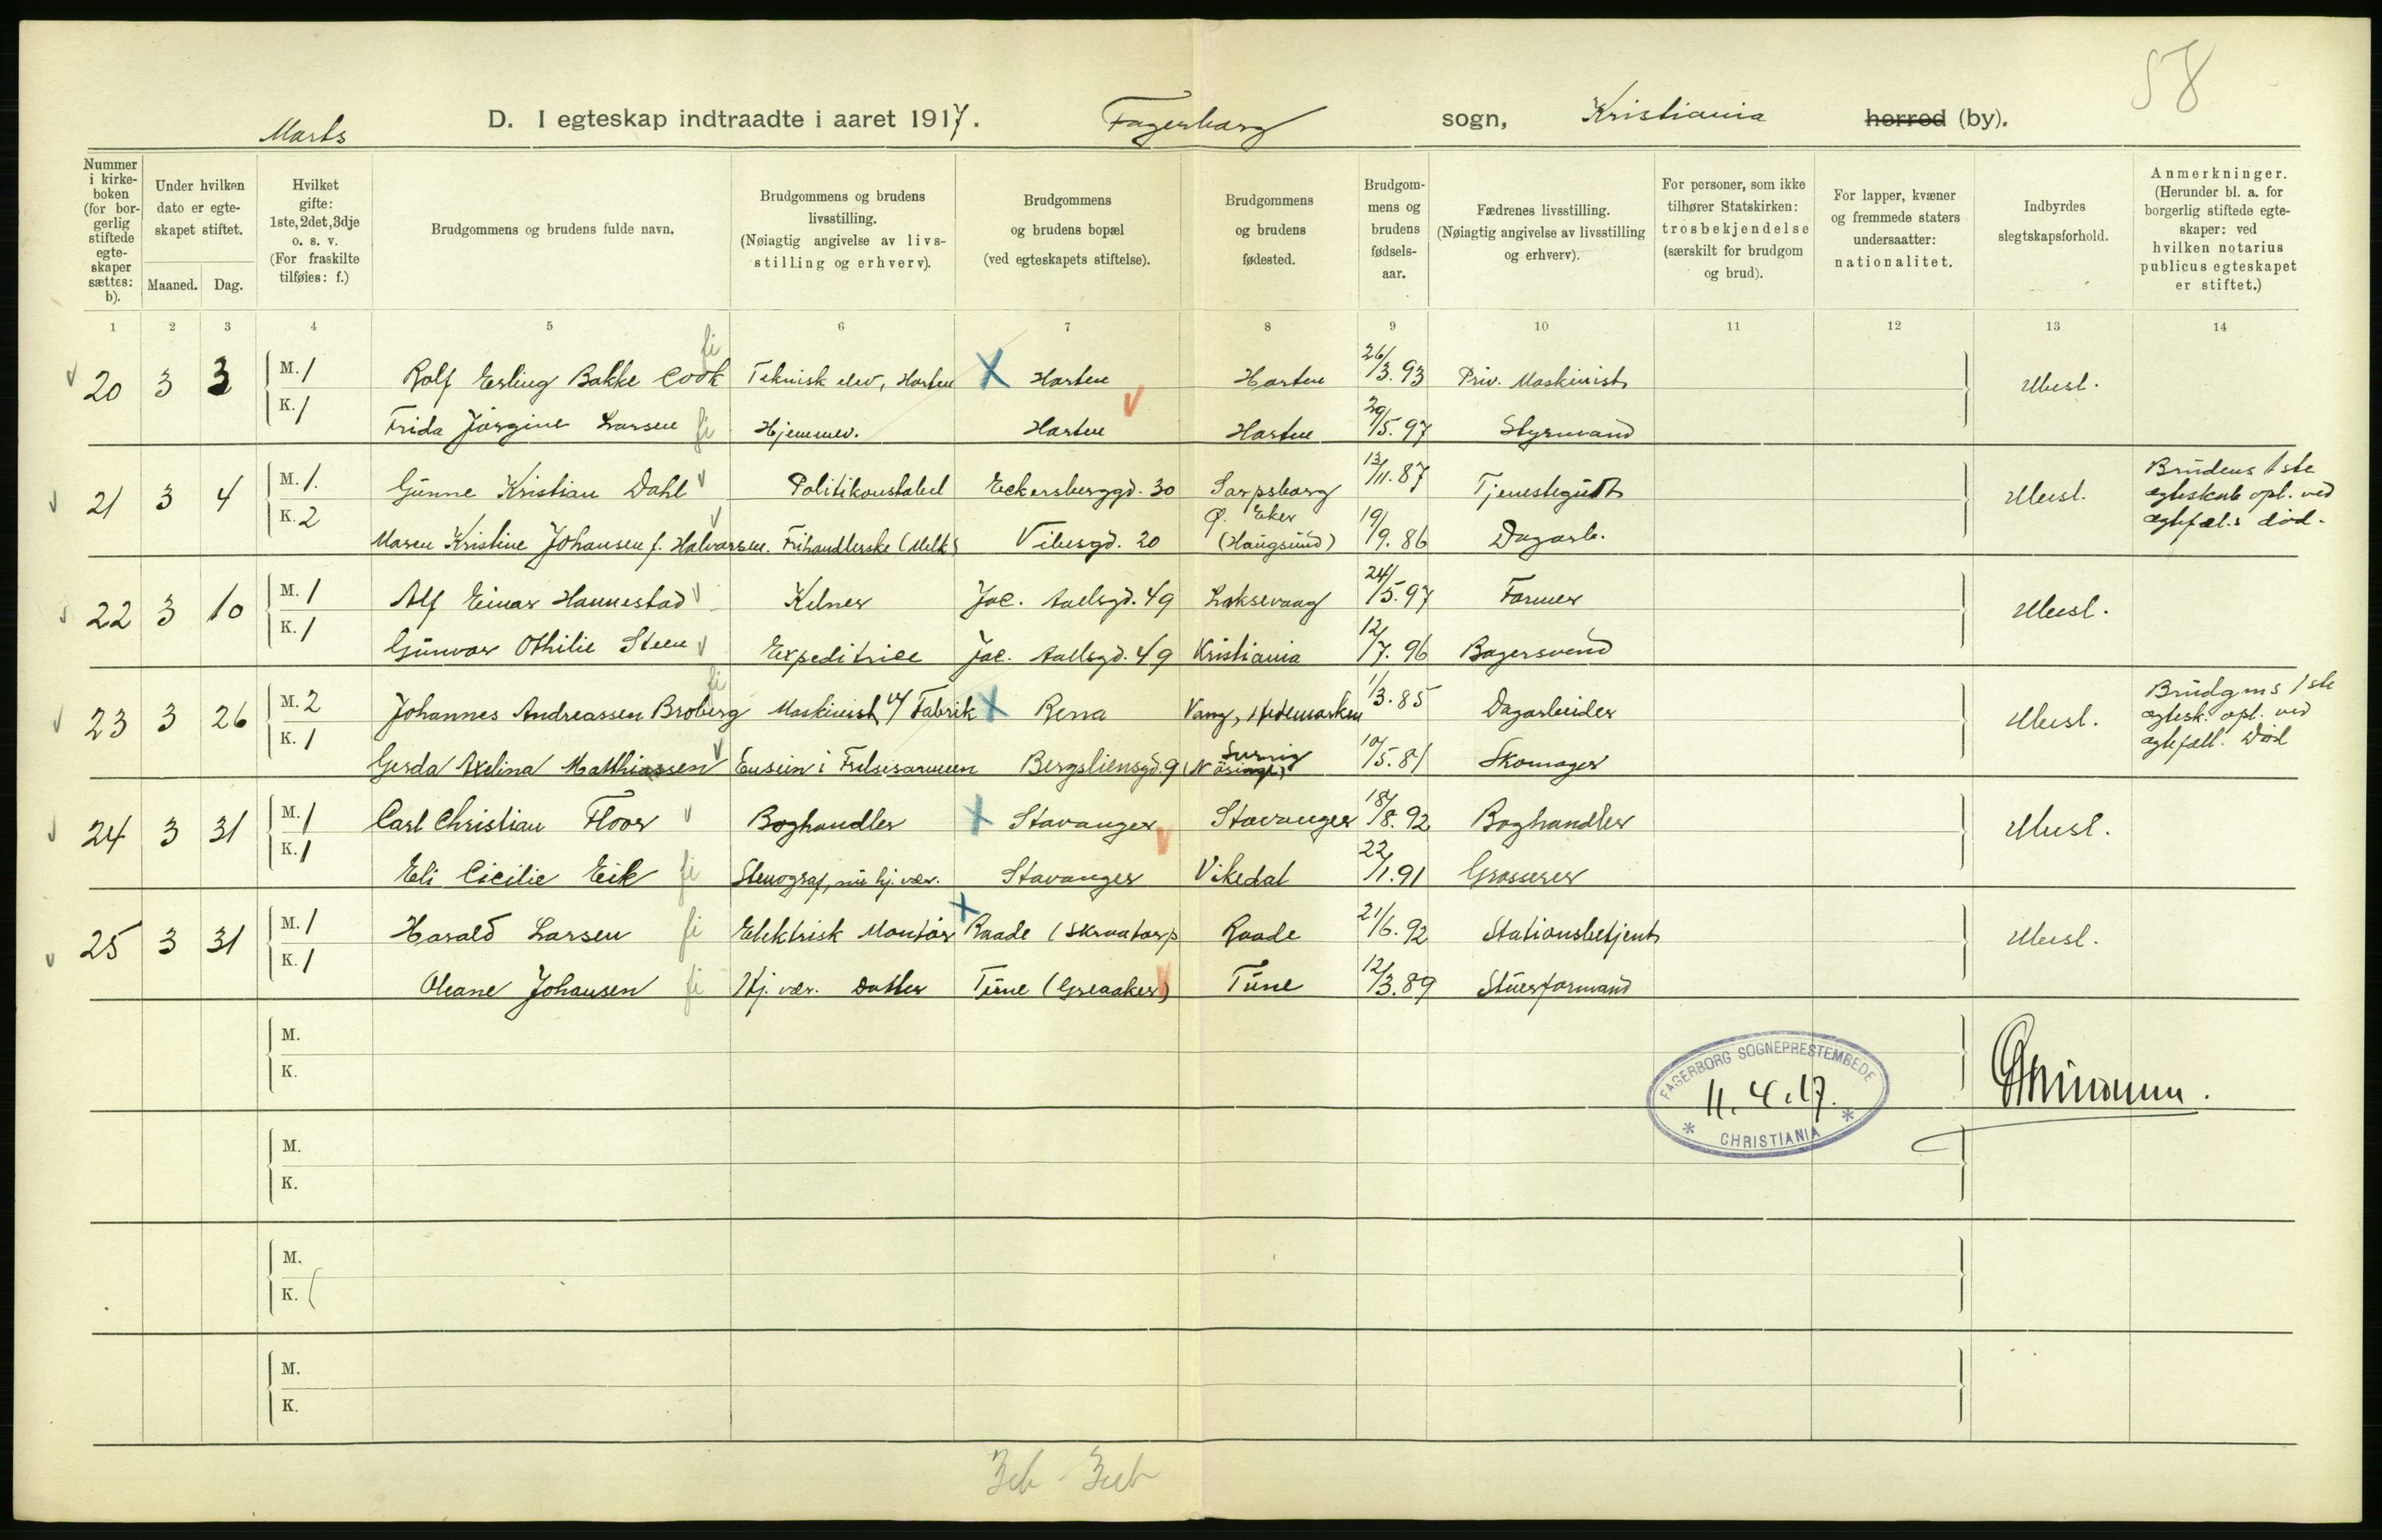 58
Marts D. I egteskap indtraadte i aaret 1917. Fagerborg sogn, Kristiania herred (by).
Nummer i kirkeboken (for borgerlig stiftede egteskaper sættes: b).
Under hvilken dato er egteskapet stiftet.
Maaned. Dag.
Hvilket gifte: 1ste, 2det, 3dje o. s. v. (For fraskilte tilføies: f.)
Brudgommens og brudens fulde navn.
Brudgommens og brudens livsstilling. (Nøiagtig angivelse av livsstilling og erhverv).
Brudgommens og brudens bopæl (ved egteskapets stiftelse).
Brudgommens og brudens fødested.
Brudgommens og brudens fødselsaar.
Fædrenes livsstilling. (Nøiagtig angivelse av livsstilling og erhverv).
For personer, som ikke tilhører Statskirken: trosbekjendelse (særskilt for brudgom og brud).
For lapper, kvæner og fremmede staters undersaatter: nationalitet.
Indbyrdes slegtskapsforhold.
Anmerkninger. (Herunder bl. a. for borgerlig stiftede egteskaper: ved hvilken notarius publicus egteskapet er stiftet.)
1 2 3 4 5 6 7 8 9 10 11 12 13 14
20 3 3 M. 1 Rolf Erling Bakke Cook Teknisk elev, Horten Horten Horten 26/3. 93 Priv. Maskinist Ubesl.
K. 1 Frida Jörgine Larsen Hjemmev. Horten Horten 29/5. 97 Styrmand
21 3 4 M. 1. Gunne Kristian Dahl Politikonstabel Eckersberggd. 30 Sarpsborg 13/11. 87 Tjenestegut Ubesl. Brudens 1ste egteskab opl. ved egtefæl.s död.
K. 2 Maren Kristine Johansen f. Halvorsen. Frihandlerske (Melk) Vibesgd. 20 Ø. Eker (Haugsund) 19/9. 86 Dagarb.
22 3 10 M. 1 Alf Einar Hannestad Kelner Jac. Aallsgd. 49 Laksevaag 24/5. 97 Former Ubesl.
K. 1 Gunvor Othilie Steen Expeditrice Jac. Aallsgd. 49 Kristiania 12/7. 96 Bagersvend
23 3 26 M. 2 Johannes Andreassen Broberg Maskinist v/ Fabrik Rena Vang, Hedemarken 1/3. 85 Dagarbeider Ubesl. Brudgms 1ste egtesk. opl. ved egtefæll. död
K. 1 Gerda Axelina Matthiassen Ensein i Frelsesarmeen Bergsliensgd. 9 10/5. 81 Skomager
24 3 31 M. 1 Carl Christian Floor Boghandler Stavanger Stavanger 18/8. 92 Boghandler Ubesl.
K. 1 Eli Cicilie Eik Stenograf, nu hj. vær. Stavanger Vikedal 22/1. 91 Grosserer
25 3 31 M. 1 Harald Larsen Elektrisk Montör Raade (Skraatorp Raade 21/6. 92 Stationsbetjent Ubesl.
K. 1 Oleane Johansen Hj. vær. Datter Tune (Greaaker) Tune 12/3. 89 Stuerformand
M.
K.
FAGERBORG SOGNEPRESTEMBEDE
11. 4. 17.
* CHRISTIANIA *
M.
K.
M.
K.
M.
K.